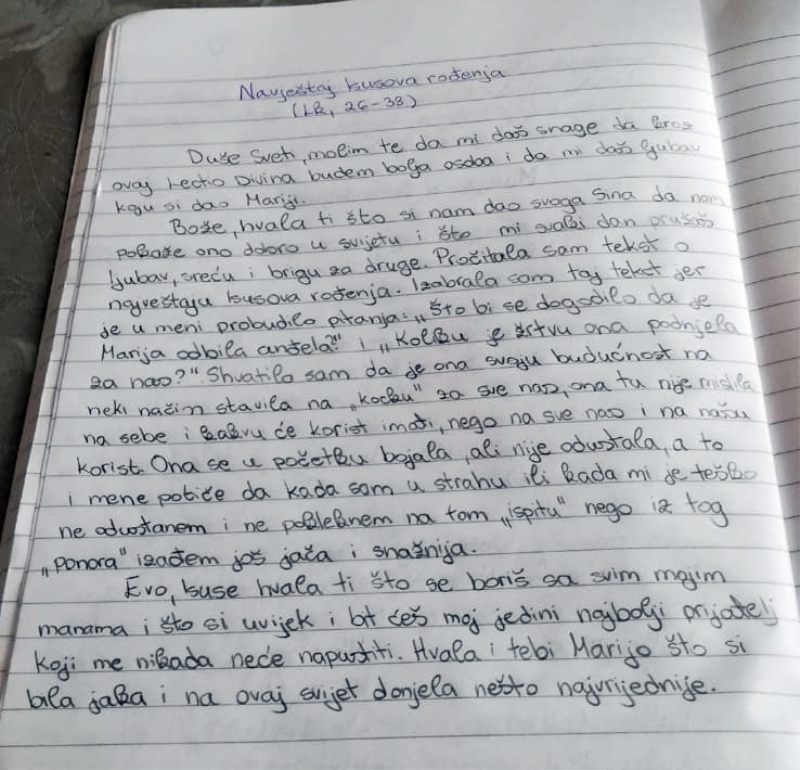 Navještaj Isusova rođenja
(Lk, 26-38)
Duše Sveti, molim te da mi daš snage da kroz
ovaj Lectio Divina budem bolja osoba i da mi daš ljubav
koju si dao Mariji.
Bože, hvala ti što si nam dao svoga Sina da nam
pokaže ono dobro u svijetu i što mi svaki dan pružaš
ljubav, sreću i brigu za druge. Pročitala sam tekst o
najveštaju Isusova rođenja. Izabrala sam taj tekst jer
je u meni probudilo pitanja: „Što bi se dogodilo da je
Marija odbila anđela?" i „Koliku je žrtvu ona podnjela
za nas?". Shvatila sam da je ona svoju budućnost na
neki način stavila na „kocku" za sve nas, ona tu nije mislila
na sebe i kakvu će korist imati, nego na sve nas i na našu
korist. Ona se u početku bojala, ali nije odustala, a to
i mene potiče da kada sam u strahu ili kada mi je teško
ne odustanem i ne pokleknem na tom „ispitu" nego iz tog
„ponora" izađem još jača i snažnija.
Evo, Isuse hvala ti što se boriš sa svim mojim
manama i što si uvijek i bit ćeš moj jedini najbolji prijatelj
koji me nikada neće napustiti. Hvala i tebi Marijo što si
bila jaka i na ovaj svijet donjela nešto najvrijednije.